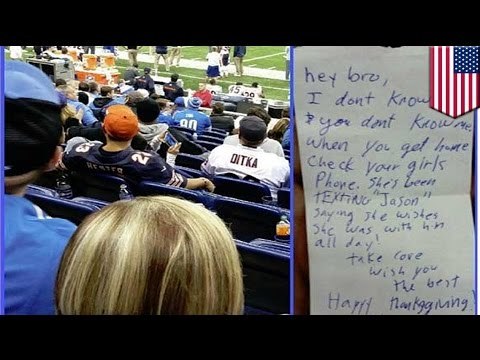 HESTER
23
90
DITKA
hey bro,
I dont know
& you dont know me
When you get home
Check your girls
Phone. She's been
TEXTING "Jason"
Saying she wishes
she was with him
all day!
take care
wish you
the best
Happy thanksgiving!